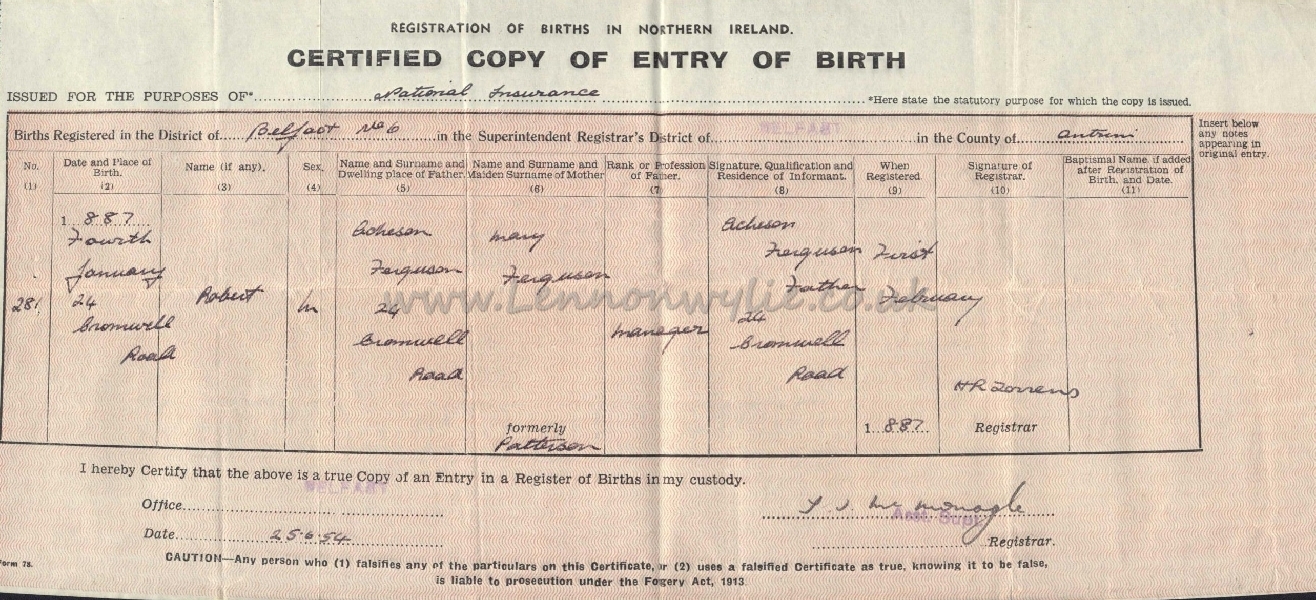 REGISTRATION OF BIRTHS IN NORTHERN IRELAND.
CERTIFIED COPY OF ENTRY OF BIRTH
ISSUED FOR THE PURPOSES OF* National Insurance *Here state the statutory purpose for which the copy is issued.
Births Registered in the District of Belfast No 6 in the Superintendent Registrar's District of BELFAST in the County of Antrim
Insert below any notes appearing in original entry.
No. (1)
Date and Place of Birth. (2)
Name (if any). (3)
Sex. (4)
Name and Surname and Dwelling place of Father. (5)
Name and Surname and Maiden Surname of Mother (6)
Rank or Profession of Father. (7)
Signature, Qualification and Residence of Informant. (8)
When Registered. (9)
Signature of Registrar. (10)
Baptismal Name, if added after Registration of Birth, and Date. (11)
281
1887
Fourth
January
24
Cromwell
Road
Robert
M
Acheson
Ferguson
24
Cromwell
Road
Mary
Ferguson
formerly
Patterson
Manager
Acheson
Ferguson
Father
24
Cromwell
Road
First
February
1887
HR Torrens
Registrar
www.Lennonwylie.co.uk
I hereby Certify that the above is a true Copy of an Entry in a Register of Births in my custody.
Office BELFAST
Date 25.6.54
McMonagle
Asst. Supt.
Registrar.
CAUTION—Any person who (1) falsifies any of the particulars on this Certificate, or (2) uses a falsified Certificate as true, knowing it to be false,
is liable to prosecution under the Fogery Act, 1913.
Form 78.